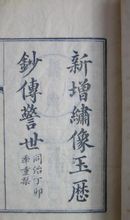 新增繡像玉厯
鈔傳警世
同治丁卯
季重梨